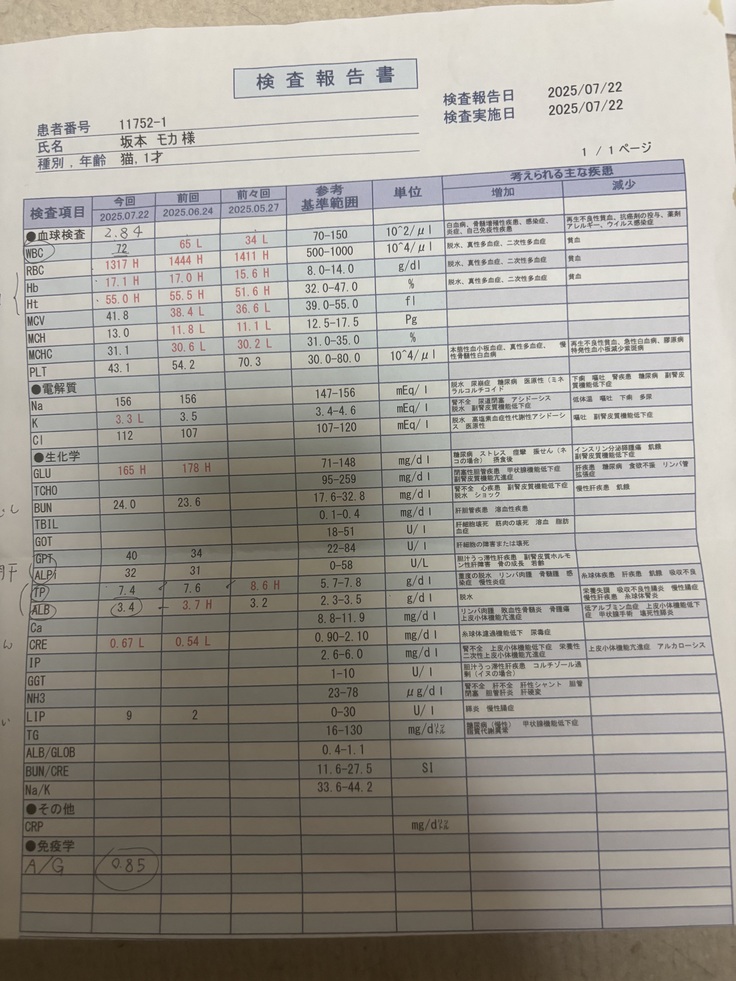 検査報告書
検査報告日 2025/07/22
検査実施日 2025/07/22
患者番号 11752-1
氏名 坂本 モカ 様
種別．年齢 猫, 1才
1 / 1 ページ
検査項目 今回 前回 前々回 参考基準範囲 単位 考えられる主な疾患
2025.07.22 2025.06.24 2025.05.27 増加 減少
●血球検査 2.84
WBC 72 65 L 34 L 70-150 10^2/μl 白血病、骨髄増殖性疾患、感染症、炎症、自己免疫性疾患 再生不良性貧血、抗癌剤の投与、薬剤アレルギー、ウイルス感染症
RBC 1317 H 1444 H 1411 H 500-1000 10^4/μl 脱水、真性多血症、二次性多血症 貧血
Hb 17.1 H 17.0 H 15.6 H 8.0-14.0 g/dl 脱水、真性多血症、二次性多血症 貧血
Ht 55.0 H 55.5 H 51.6 H 32.0-47.0 % 脱水、真性多血症、二次性多血症 貧血
MCV 41.8 38.4 L 36.6 L 39.0-55.0 fl
MCH 13.0 11.8 L 11.1 L 12.5-17.5 Pg
MCHC 31.1 30.6 L 30.2 L 31.0-35.0 %
PLT 43.1 54.2 70.3 30.0-80.0 10^4/μl 本態性血小板血症、真性多血症、慢性骨髄性白血病 再生不良性貧血、急性白血病、膠原病 特発性血小板減少紫斑病
●電解質
Na 156 156 147-156 mEq/l 脱水 尿崩症 糖尿病 医原性（ミネラルコルチコイド 下痢 嘔吐 腎疾患 糖尿病 副腎皮質機能低下症
K 3.3 L 3.5 3.4-4.6 mEq/l 腎不全 尿道閉塞 アシドーシス 脱水 副腎皮質機能低下症 低体温 嘔吐 下痢 多尿
Cl 112 107 107-120 mEq/l 脱水 高塩素血症性代謝性アシドーシス 医原性 嘔吐 副腎皮質機能低下症
●生化学
GLU 165 H 178 H 71-148 mg/dl 糖尿病 ストレス 痙攣 振せん（ネコの場合） 摂食後 インスリン分泌膵腫瘍 飢餓 副腎皮質機能低下症
TCHO 95-259 mg/dl 閉塞性胆管疾患 甲状腺機能低下症 副腎皮質機能亢進症 肝疾患 糖尿病 食欲不振 リンパ管拡張症
BUN 24.0 23.6 17.6-32.8 mg/dl 腎不全 心疾患 副腎皮質機能低下症 脱水 ショック 慢性肝疾患 飢餓
TBIL 0.1-0.4 mg/dl 肝胆管疾患 溶血性疾患
GOT 18-51 U/l 肝細胞壊死 筋肉の壊死 溶血 脂肪血症
GPT 40 34 22-84 U/l 肝細胞の障害または壊死
ALP 32 31 0-58 U/L 胆汁うっ滞性肝疾患 副腎皮質ホルモン性肝障害 骨の成長 若齢
TP 7.4 7.6 8.6 H 5.7-7.8 g/dl 重度の脱水 リンパ肉腫 骨髄腫 感染症 慢性炎症 糸球体疾患 肝疾患 飢餓 吸収不良
ALB 3.4 3.7 H 3.2 2.3-3.5 g/dl 脱水 栄養失調 吸収不良性腸炎 慢性腸炎 慢性肝疾患 糸球体腎炎
Ca 8.8-11.9 mg/dl リンパ肉腫 敗血性骨髄炎 骨腫瘍 上皮小体機能亢進症 低アルブミン血症 上皮小体機能低下症 甲状腺手術 壊死性膵炎
CRE 0.67 L 0.54 L 0.90-2.10 mg/dl 糸球体濾過機能低下 尿毒症
IP 2.6-6.0 mg/dl 腎不全 上皮小体機能低下症 栄養性二次性上皮小体機能亢進症 上皮小体機能亢進症 アルカローシス
GGT 1-10 U/l 胆汁うっ滞性肝疾患 コルチゾール過剰（イヌの場合）
NH3 23-78 μg/dl 腎不全 肝不全 肝性シャント 胆管閉塞 胆管肝炎 肝硬変
LIP 9 2 0-30 U/l 膵炎 慢性腸症
TG 16-130 mg/dリットル 糖尿病（慢性） 甲状腺機能低下症 脂質代謝異常
ALB/GLOB 0.4-1.1
BUN/CRE 11.6-27.5 SI
Na/K 33.6-44.2
●その他
CRP mg/dリットル
●免疫学
A/G 0.85